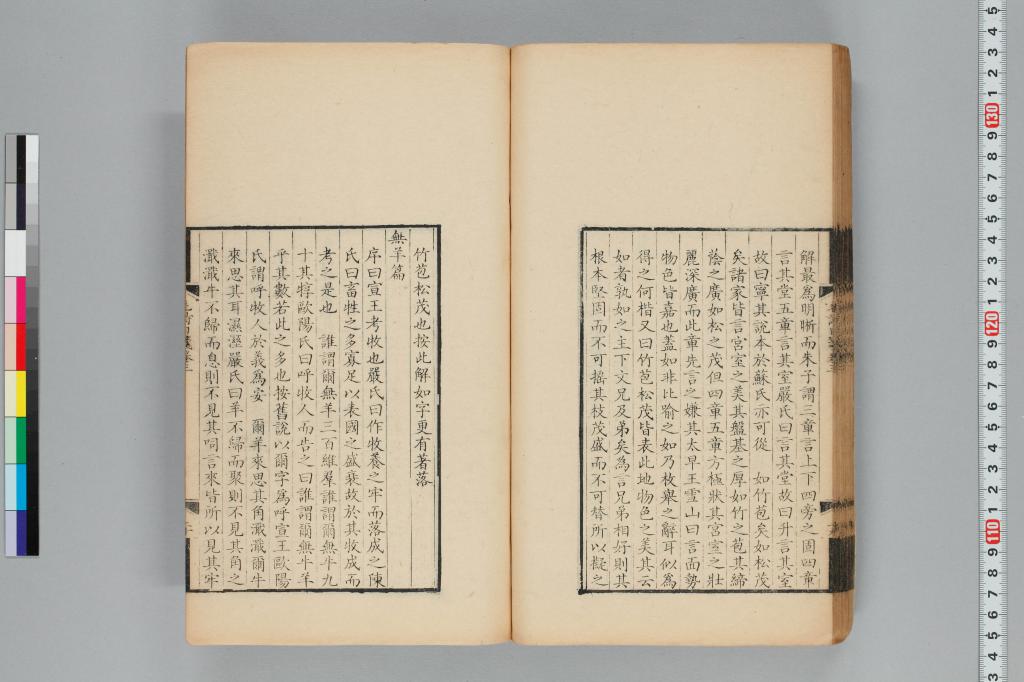 解最為明晰而朱子謂三章言上下四旁之固四章
言其堂五章言其室嚴氏曰言其堂故曰升言其室
故曰寧其說本於蘇氏亦可從　如竹苞矣如松茂
矣諸家皆言宮室之美其盤基之厚如竹之苞其締
蔭之廣如松之茂但四章五章方極狀其宮室之壯
麗深廣而此章先言之嫌其太早王雪山曰言面勢
物色皆嘉也蓋如非比喻之如乃枚舉之辭耳似為
得之何楷又曰竹苞松茂皆表此地物色之美其云
如者孰如之主下文兄及弟矣為言兄弟相好則其
根本堅固而不可搖其枝茂盛而不可替所以擬之
竹苞松茂也按此解如字更有著落
無羊篇
序曰宣王考牧也嚴氏曰作牧養之牢而落成之陳
氏曰畜牲之多寡足以表國之盛衰故於其牧成而
考之是也　誰謂爾無羊三百維羣誰謂爾無牛九
十其犉歐陽氏曰呼牧人而告之曰誰謂爾無牛羊
乎其數若此之多也按舊說以爾字為呼宣王歐陽
氏謂呼牧人於義為安　爾羊來思其角濈濈爾牛
來思其耳濕溼嚴氏曰羊不歸而聚則不見其角之
濈濈牛不歸而息則不見其呞言來皆所以見其牢